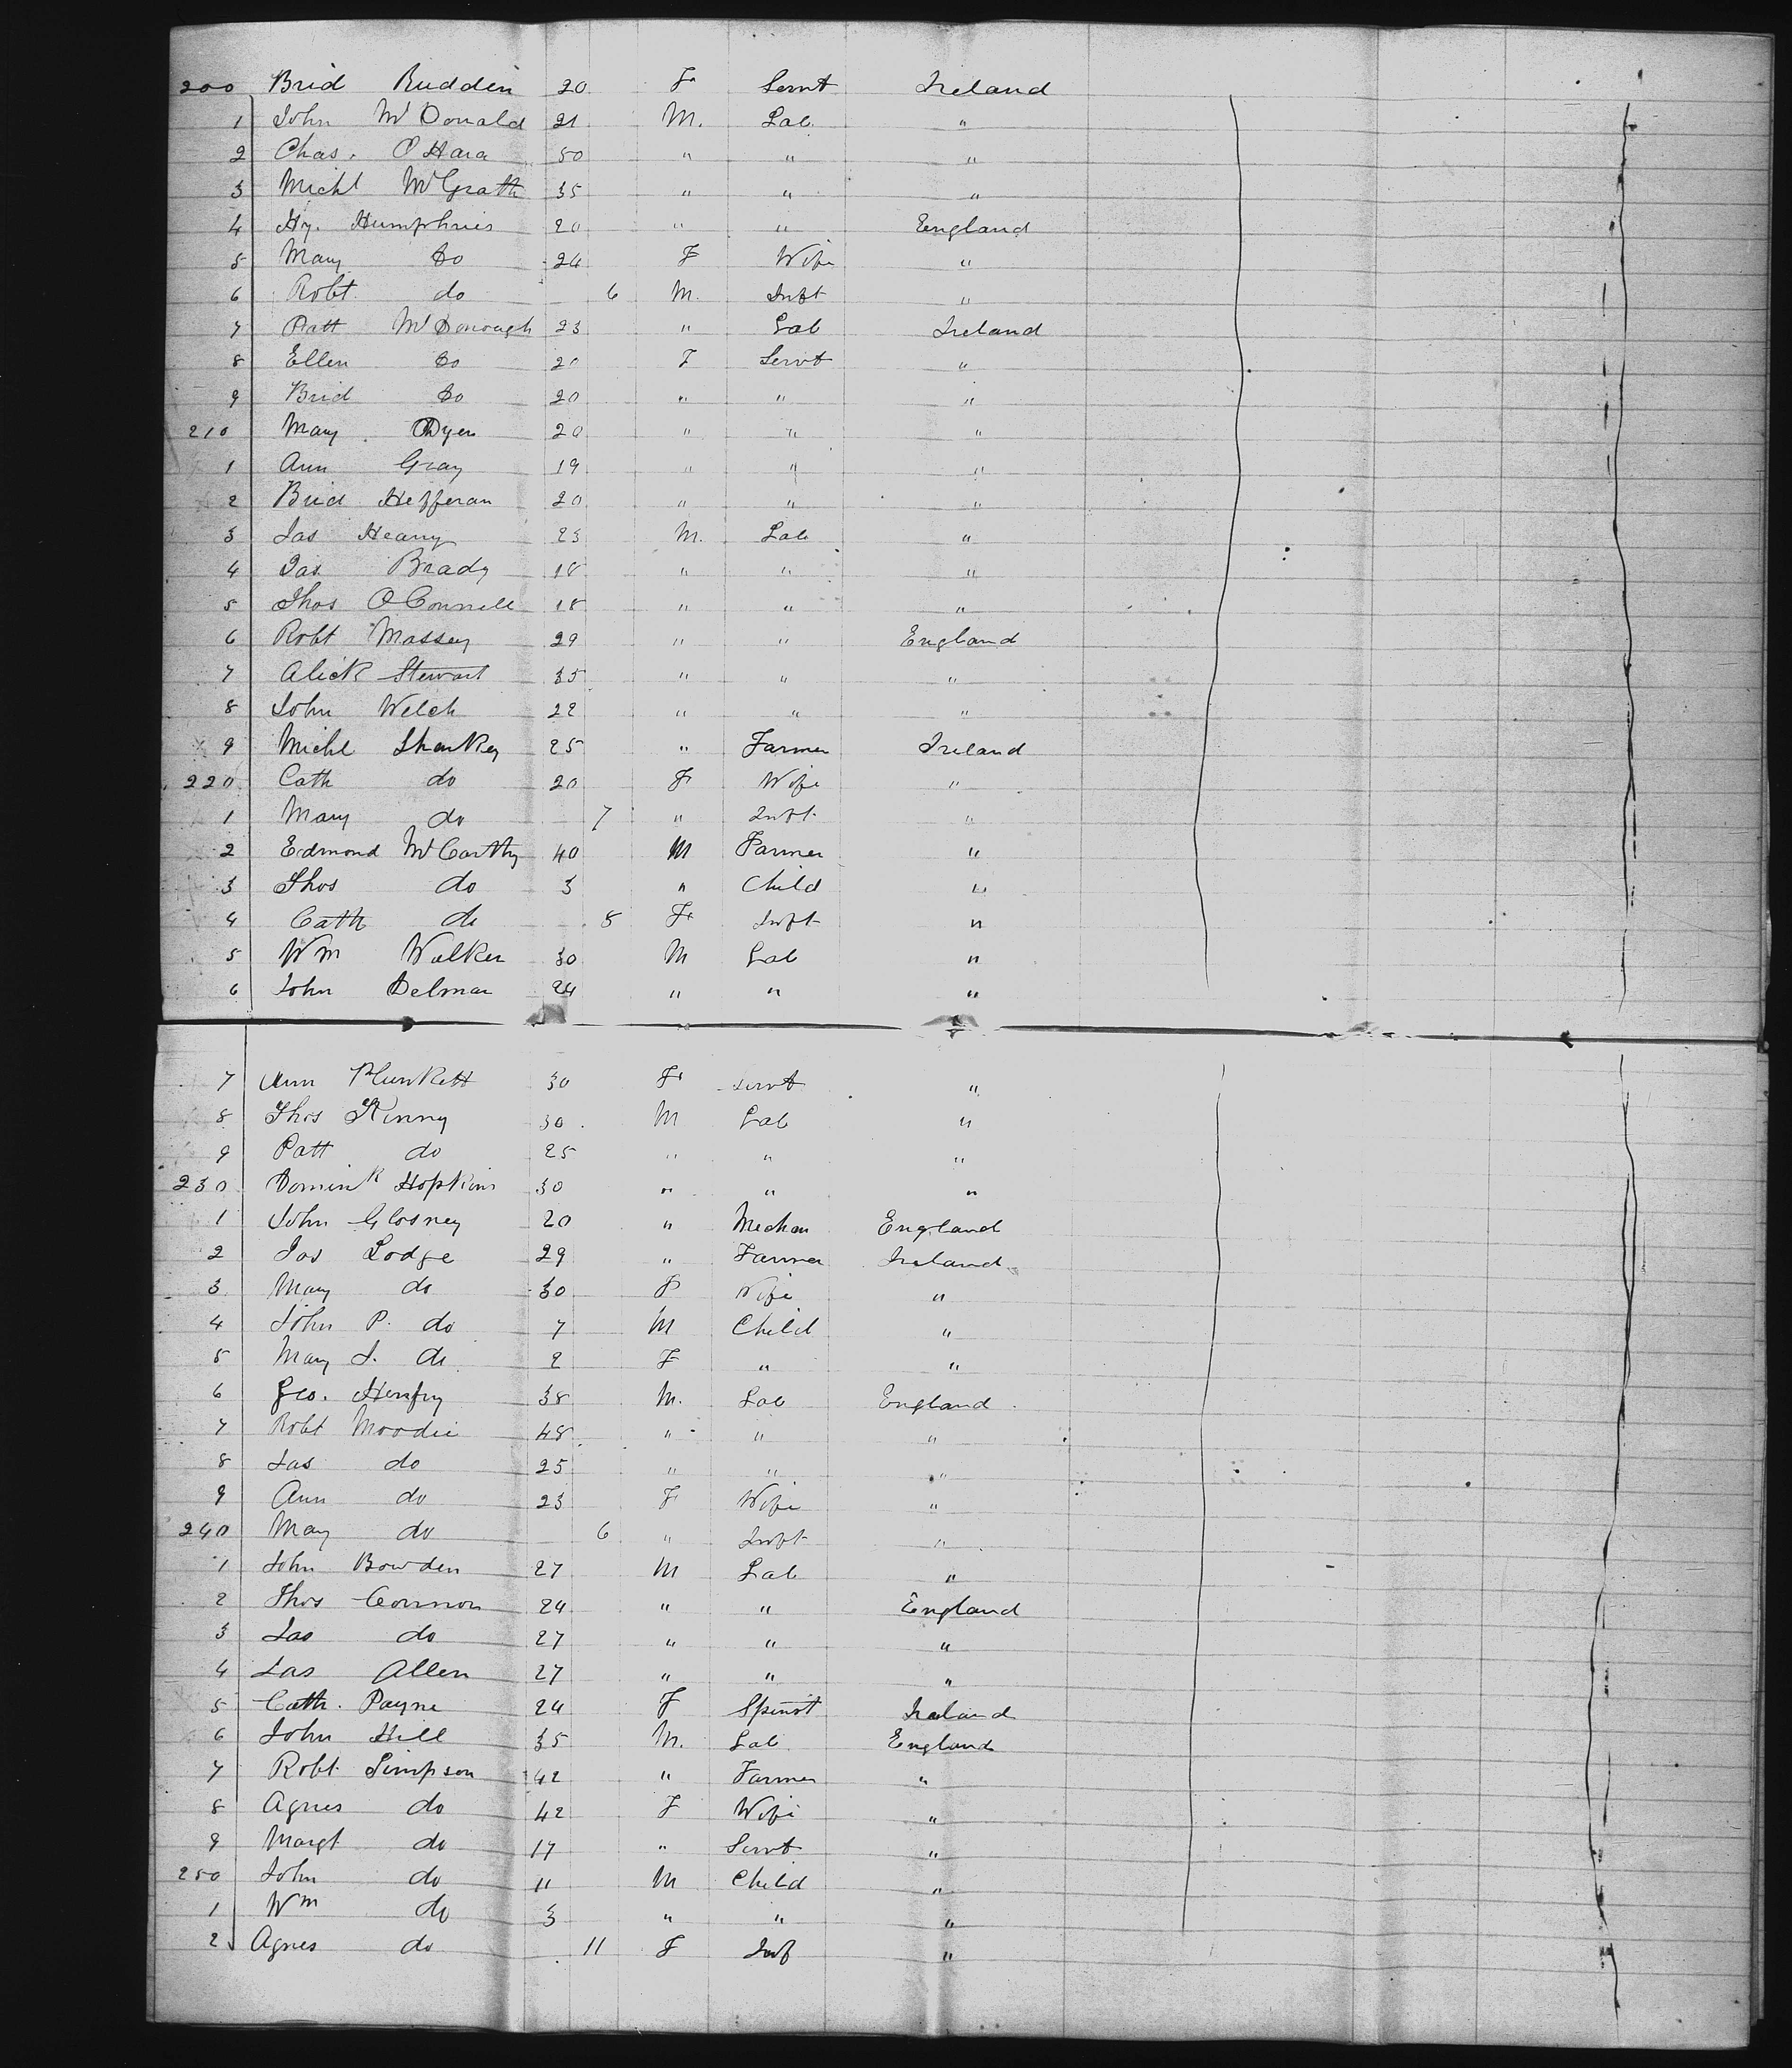 200 Brid Budden 20 F Servt Ireland
1 John McDonald 21 M. Lab "
2 Chas. O Hara 50 " " "
3 Michl McGrath 35 " " "
4 Hy. Humphries 20 " " England
5 Mary Do 24 F Wife "
6 Robt. do 6 M. Inft "
7 Patt McDonough 23 " Lab Ireland
8 Ellen Do 20 F Servt "
9 Brid Do 20 " " "
210 Mary Dyer 20 " " "
1 Ann Gray 19 " " "
2 Brid Hefferan 20 " " "
3 Jas Heany 23 M. Lab "
4 Jas Brady 18 " " "
5 Thos O Connell 18 " " "
6 Robt Massey 29 " " England
7 Alick Stewart 35 " " "
8 John Welch 22 " " "
9 Michl Sharkey 25 " Farmer Ireland
220 Cath do 20 F Wife "
1 Mary do 7 " Inft "
2 Edmond McCarthy 40 M Farmer "
3 Thos do 3 " Child "
4 Cath do 8 F Inft "
5 Wm Walker 30 M Lab "
6 John Delmar 24 " " "
7 Ann Plunkett 30 F Servt "
8 Thos Kinny 30 M Lab "
9 Patt do 25 " " "
230 Domink Hopkins 30 " " "
1 John Glosney 20 " Mechan England
2 Jas Lodge 29 " Farmer Ireland
3 Mary do 30 F Wife "
4 John P. do 7 M Child "
5 Mary J. do 2 F " "
6 Geo. Henfry 38 M. Lab England
7 Robt Moodie 48 " " "
8 Jas do 25 " " "
9 Ann do 23 F Wife "
240 May do 6 " Inft "
1 John Bowden 27 M Lab "
2 Thos Connor 24 " " England
3 Jas do 27 " " "
4 Jas Allen 27 " " "
5 Cath. Payne 24 F Spinst Ireland
6 John Hill 35 M. Lab England
7 Robt Simpson 42 " Farmer "
8 Agnes do 42 F Wife "
9 Margt do 17 " Servt "
250 John do 11 M Child "
1 Wm do 3 " " "
2 Agnes do 11 F Inf "